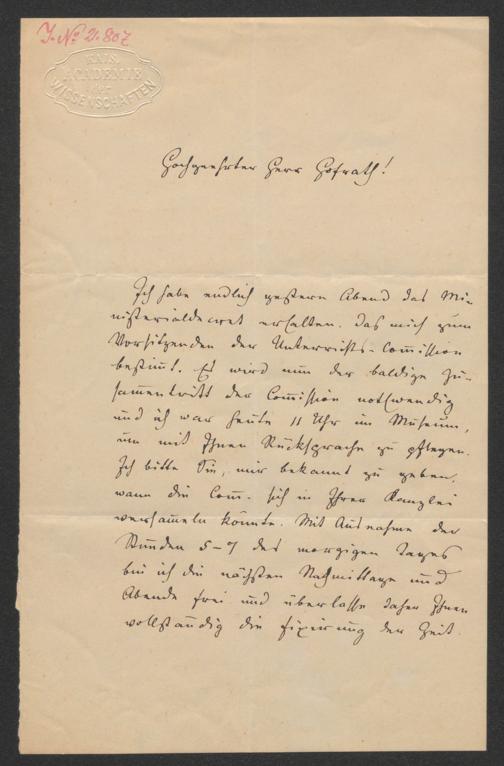 J. No 21.807
KAIS.
ACADEMIE
der
WISSENSCHAFTEN
Hochgeehrter Herr Hofrath!
Ich habe endlich gestern Abend das Mi-
nisterialdecret erhalten, das mich zum
Vorsitzenden der Unterrichts-Com̄ission
bestim̄t. Es wird nun der baldige Zu-
sam̄entritt der Com̄ission nothwendig
und ich war heute 11 Uhr im Museum,
um mit Ihnen Rücksprache zu pflegen.
Ich bitte Sie, mir bekannt zu geben,
wann die Com̄. sich in Ihrer Kanzlei
versam̄eln könnte. Mit Ausnahme der
Stunden 5-7 des morgigen Tages
bin ich die nächsten Nachmittage und
Abende frei und überlasse daher Ihnen
vollständig die Fixirung der Zeit.